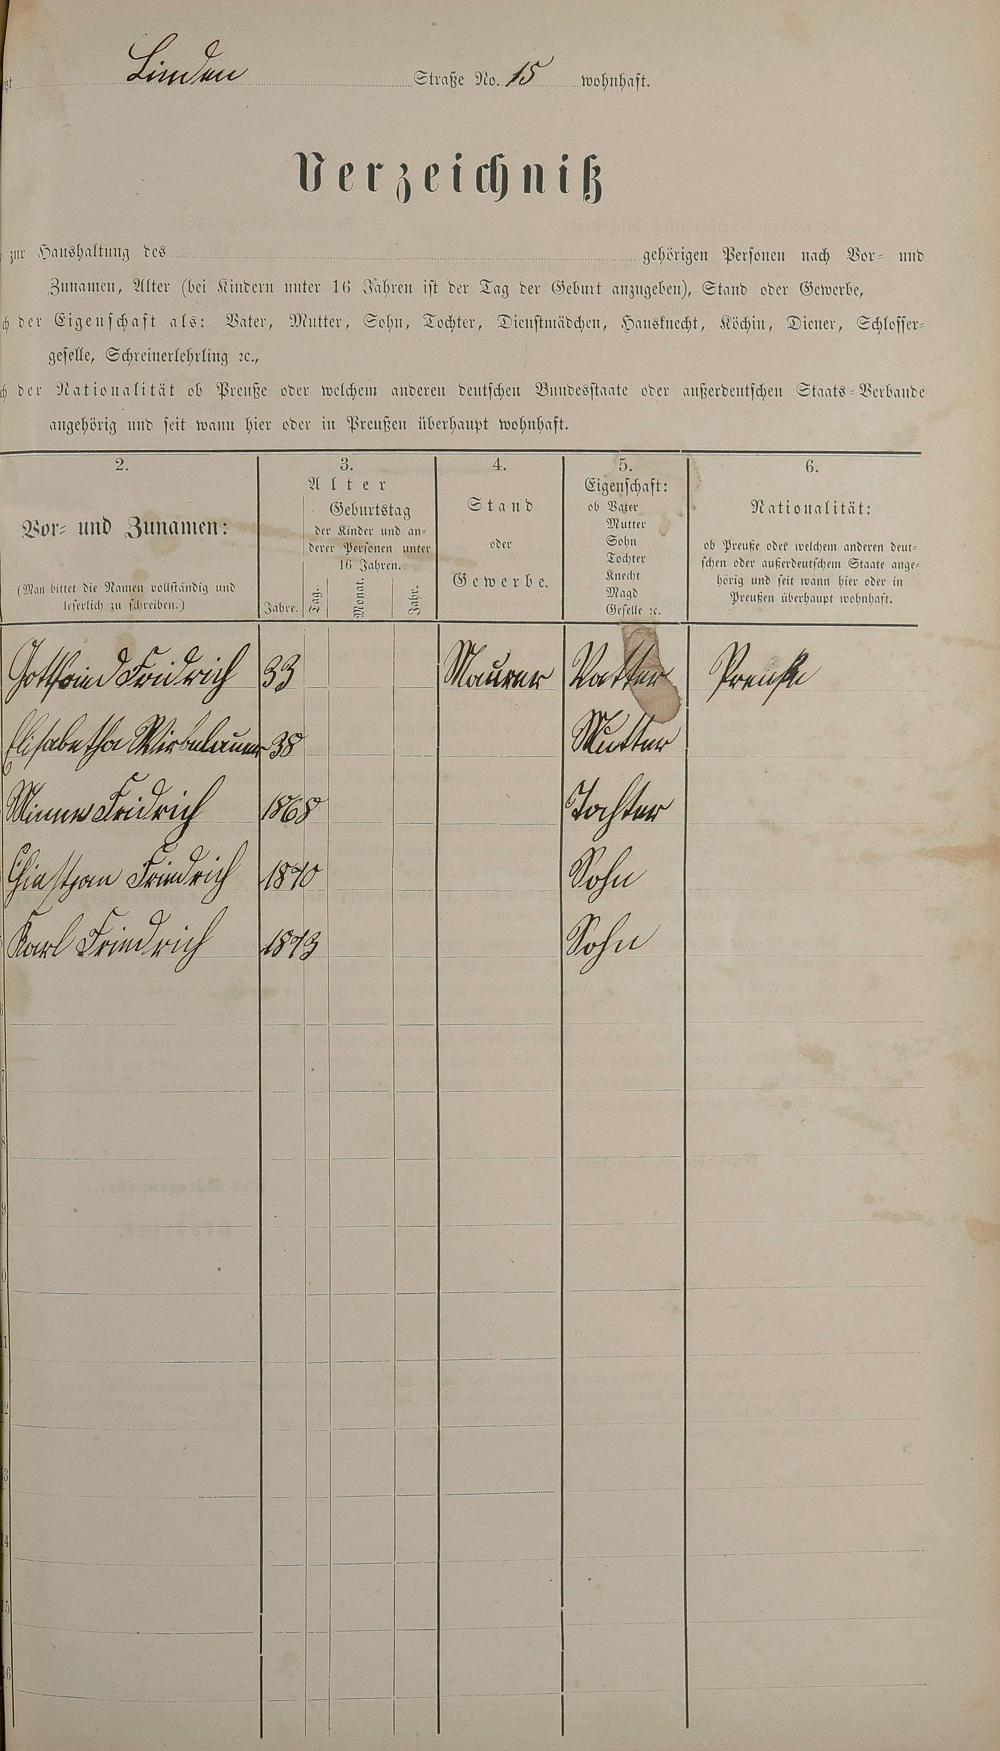 Linden Straße No. 15 wohnhaft.
Verzeichniß
zur Haushaltung des gehörigen Personen nach Vor= und
Zunamen, Alter (bei Kindern unter 16 Jahren ist der Tag der Geburt anzugeben), Stand oder Gewerbe,
der Eigenschaft als: Vater, Mutter, Sohn, Tochter, Dienstmädchen, Hausknecht, Köchin, Diener, Schlosser=
geselle, Schreinerlehrling ꝛc.,
der Nationalität ob Preuße oder welchem anderen deutschen Bundesstaate oder außerdeutschen Staats=Verbande
angehörig und seit wann hier oder in Preußen überhaupt wohnhaft.
2. 3. 4. 5. 6.
Vor= und Zunamen:
(Man bittet die Namen vollständig und
leserlich zu schreiben.)
Alter
Geburtstag
der Kinder und an=
derer Personen unter
16 Jahren.
Jahre. Tag. Monat. Jahr.
Stand
oder
Gewerbe.
Eigenschaft:
ob Vater
Mutter
Sohn
Tochter
Knecht
Magd
Geselle ꝛc.
Nationalität:
ob Preuße oder welchem anderen deut=
schen oder außerdeutschem Staate ange=
hörig und seit wann hier oder in
Preußen überhaupt wohnhaft.
Fridrich 33 Maurer Vatter Preuße
Elisabetha 38 Mutter
Fridrich 1868 Tochter
Friedrich 1870 Sohn
Karl Friedrich 1873 Sohn
7
8
9
14
15
16